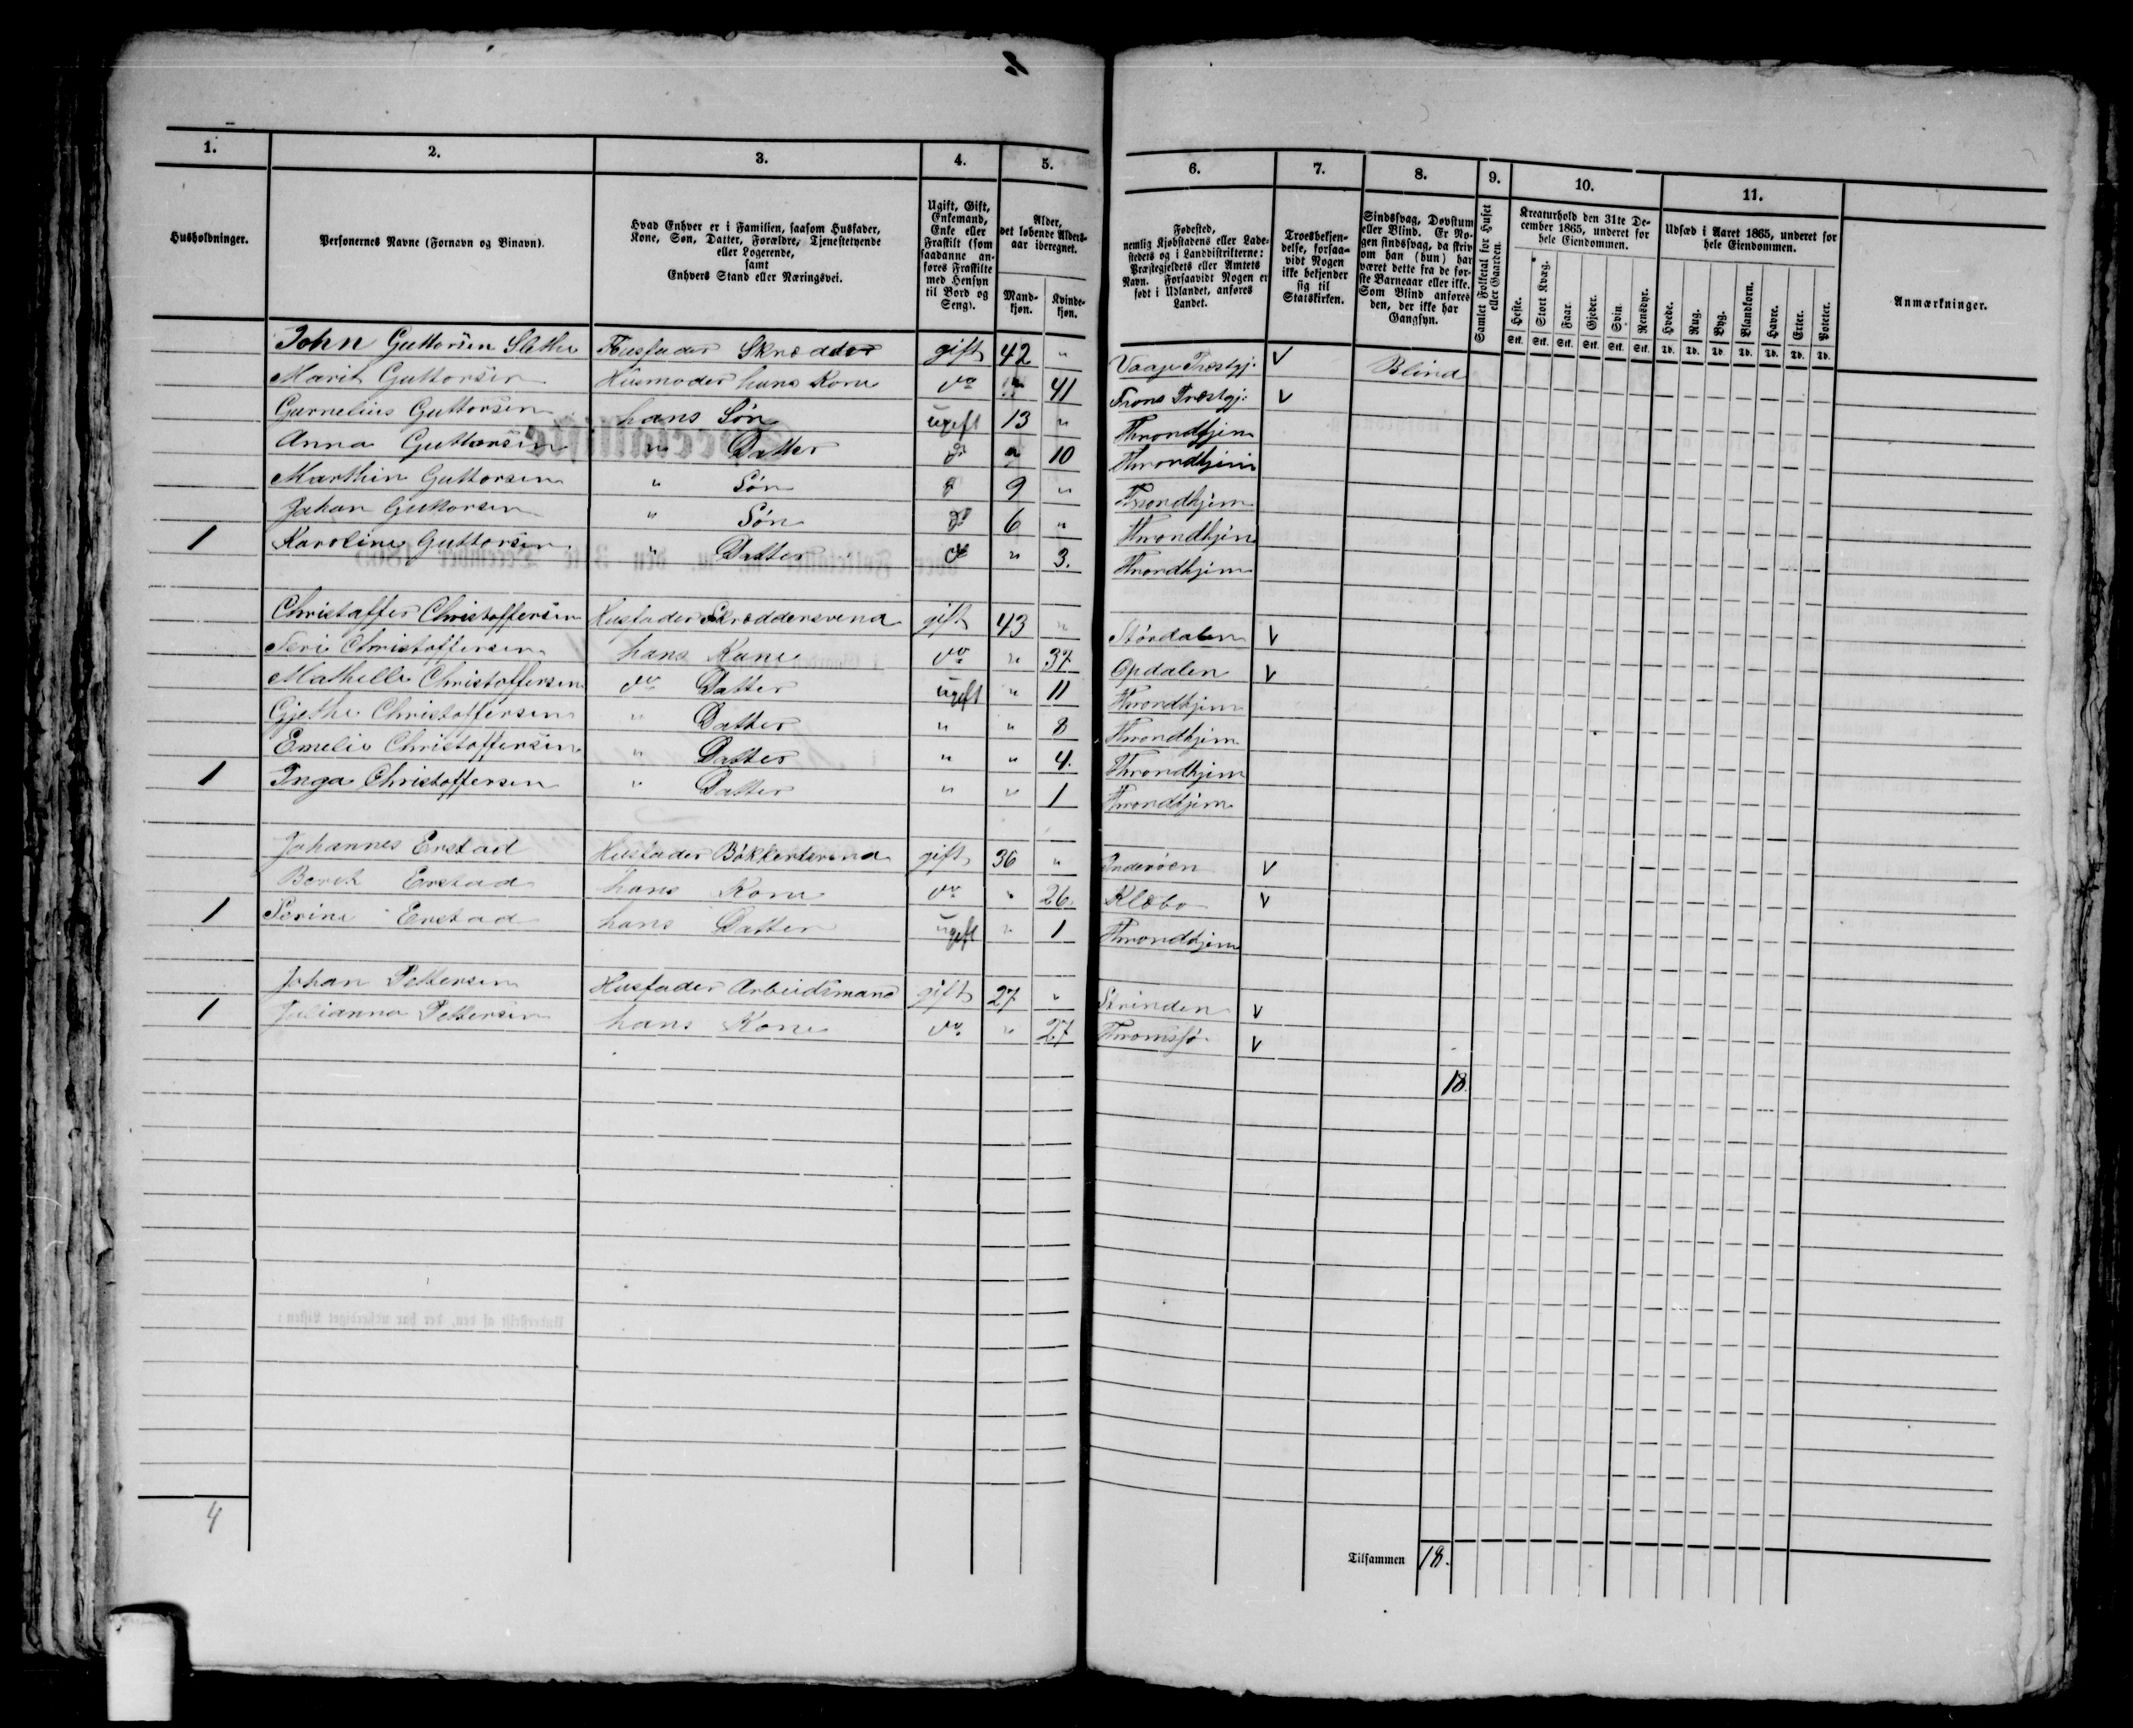 1. 2. 3. 4. 5. 6. 7. 8. 9. 10. 11.
Husholdninger.
Personernes Navne (Fornavn og Binavn).
Hvad Enhver er i Familien, saasom Husfader,
Kone, Søn, Datter, Forældre, Tjenestetyende
eller Logerende,
samt
Enhvers Stand eller Næringsvei.
Ugift, Gift,
Enkemand,
Enke eller
Fraskilt (som
saadanne an-
føres Fraskilte
med Hensyn
til Bord og
Seng).
Alder,
det løbende Alders-
aar iberegnet.
Mand-
kjøn.
Kvinde-
kjøn.
Fødested,
nemlig Kjøbstadens eller Lade-
stedets og i Landdistrikterne:
Præstegjeldets eller Amtets
Navn. Forsaavidt Nogen er
født i Udlandet, anføres
Landet.
Troesbekjen-
delse, forsaa-
vidt Nogen
ikke bekjender
sig til
Statskirken.
Sindssvag, Døvstum
eller Blind. Er No-
gen sindssvag, da skriv
om han (hun) har
været dette fra de før-
ste Barneaar eller ikke.
Som Blind anføres
den, der ikke har
Gangsyn.
Samlet Folketal for Huset
eller Gaarden.
Kreaturhold den 31te De-
cember 1865, underet for
hele Eiendommen.
Heste. Stort Kvæg. Faar. Gjeder. Svin. Rensdyr.
Stk. Stk. Stk. Stk. Stk. Stk.
Udsæd i Aaret 1865, underet for
hele Eiendommen.
Hvede. Rug. Byg. Blandkorn. Havre. Erter. Poteter.
Td. Td. Td. Td. Td. Td. Td.
Anmærkninger.
John Guttorsen Slethe Husfader Skrædder gift 42 " Vaage Præstgj: V Blind
Marit Guttorsen Husmoder hans Kone do " 41 Frons Præstgj: V
Gurnelius Guttorsen hans Søn ugift 13 " Throndhjem
Anna Guttorsen " Datter do " 10 Throndhjem
Marthin Guttorsen " Søn do 9 " Throndhjem
Johan Guttorsen " Søn do 6 " Throndhjem
1 Karoline Guttorsen " Datter do " 3. Throndhjem
Christaffer Christoffersen Husfader Skræddersvend gift 43 " Størdalen V
Seri Christoffersen hans Kone do " 37 Opdalen V
Mathilde Christoffersen do Datter ugift " 11 Throndhjem
Gjethe Christoffersen " Datter " " 8 Throndhjem
Emelie Christoffersen " Datter " " 4. Throndhjem
1 Inga Christoffersen " Datter " " 1 Throndhjem
Johannes Erstad Husfader Bøkkersvend gift 36 " Inderøen V
Berit Erstad hans Kone do " 26. Klæbo V
1 Perine Erstad hans Datter ugift " 1 Throndhjem
Johan Pettersen Husfader Arbeidsmand gift 27 " Strinden V
1 Julianna Pettersen hans Kone do " 27 Thromsø V
18.
4
Tilsammen 18.